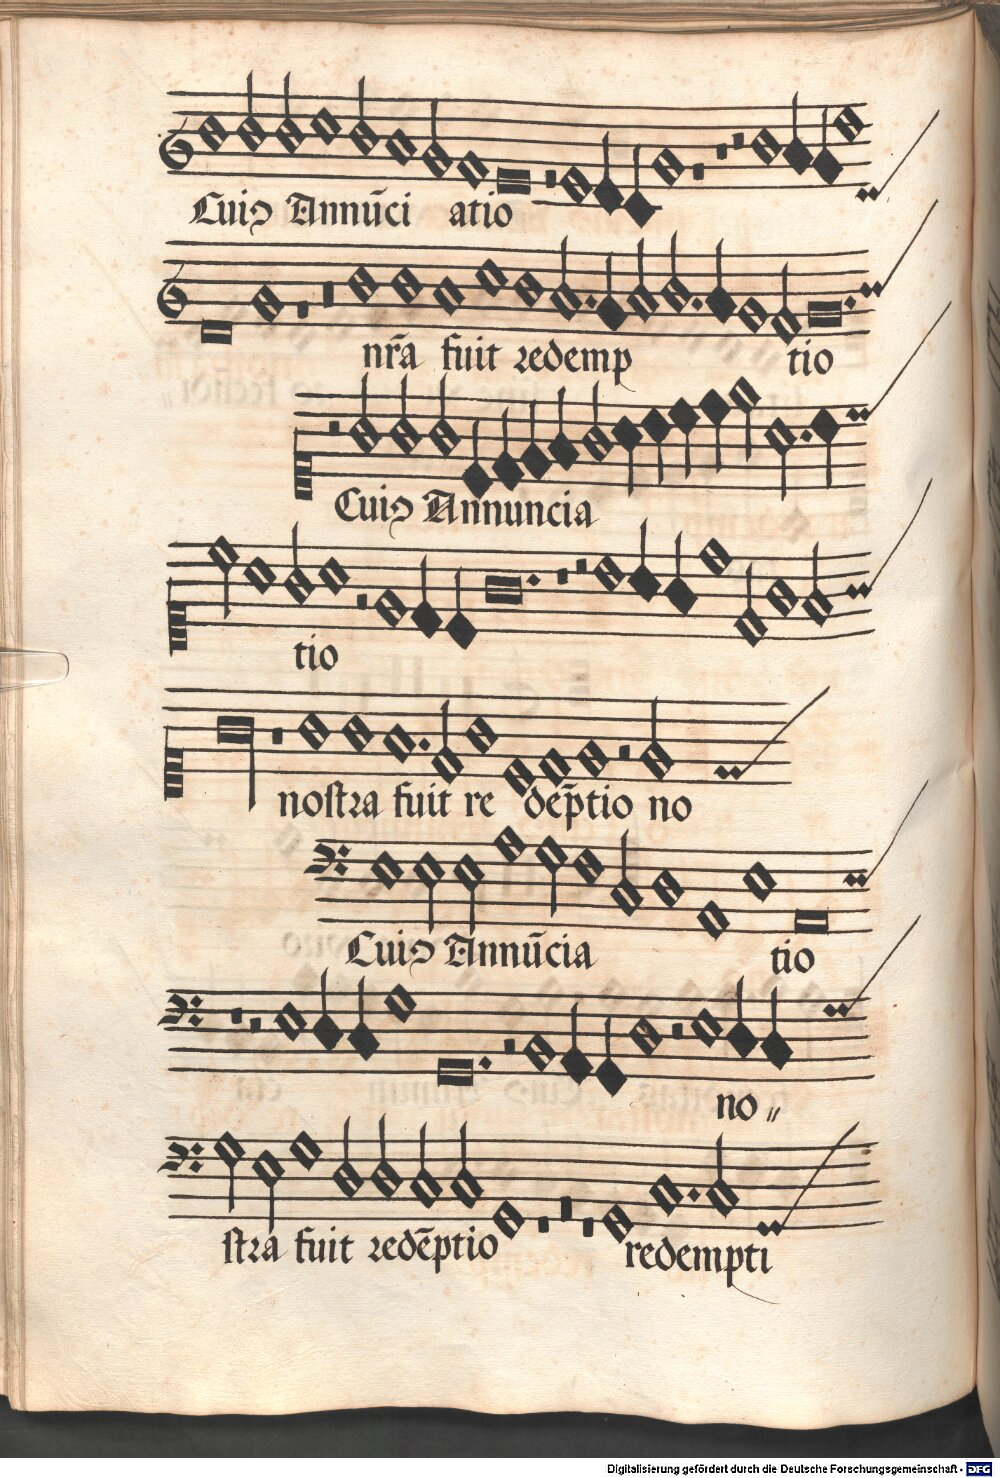 Cuiꝰ Annūci atio
nr̄a fuit redemp tio
Cuiꝰ Annuncia
tio
nostra fuit re dep̄tio no
Cuiꝰ Annūcia tio
no〃
stra fuit redēptio redempti
Digitalisierung gefördert durch die Deutsche Forschungsgemeinschaft - DFG